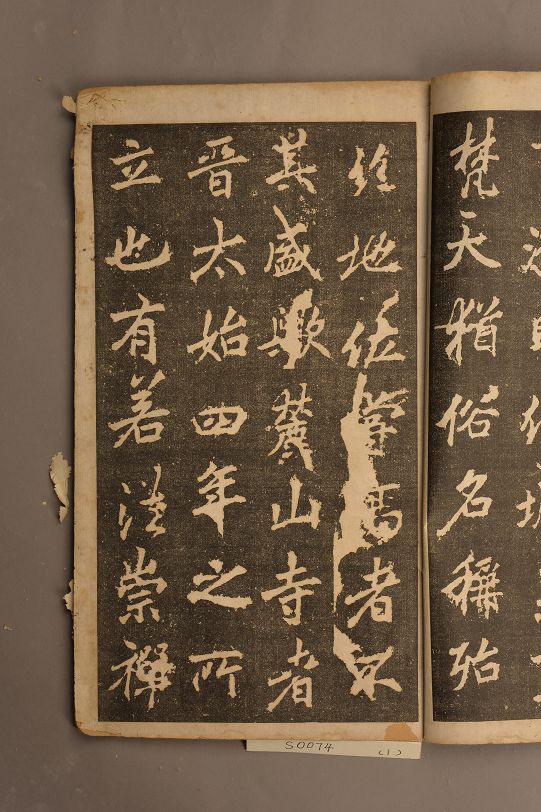 梵天猶俗名稱殆
絕地位嘗高者不
其盛歟麓山寺者
晉太始四年之所
立也有若法崇禪
S0074 (1)